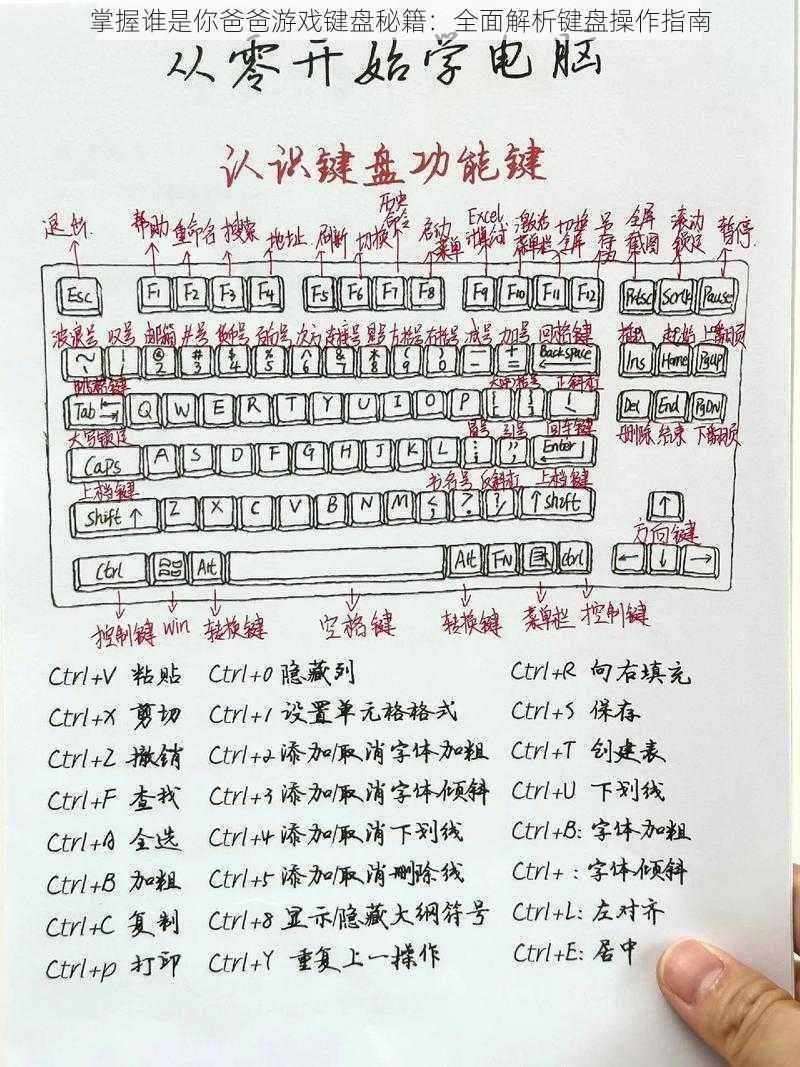 掌握谁是你爸爸游戏键盘秘籍：全面解析键盘操作指南
从零开始学电脑
认识键盘功能键
退出 帮助 重命名 搜索 地址 刷新 切换 历史命令 启动菜单 Excel计算公式 激活菜单栏 切换全屏 另存为 全屏截图 滚动锁定 暂停
Esc F1 F2 F3 F4 F5 F6 F7 F8 F9 F10 F11 F12 Prtsc Scrlk Pause
波浪号 叹号 邮箱 井号 货币号 百分号 次方 连接号 星号 左括号 右括号 减号 加号 回格键 插入 起始 上翻页
~ ` ! 1 @ 2 # 3 $ 4 % 5 ^ 6 & 7 * 8 ( 9 ) 0 — - + = Backspace Ins Home PgUp
大(中)括号 正斜杠
Tab Q W E R T Y U I O P Del End PgDn
大写锁定 冒号 引号 回车键 删除 结束 下翻页
Caps A S D F G H J K L Enter
上档键 书名号 反斜杠 上档键
Shift ↑ Z X C V B N M ↑ Shift ↑
方向键
Ctrl Alt Alt FN Ctrl ← ↓ →
控制键 Win 转换键 空格键 转换键 菜单栏 控制键
Ctrl+V 粘贴 Ctrl+0 隐藏列 Ctrl+R 向右填充
Ctrl+X 剪切 Ctrl+1 设置单元格格式 Ctrl+S 保存
Ctrl+Z 撤销 Ctrl+2 添加/取消字体加粗 Ctrl+T 创建表
Ctrl+F 查找 Ctrl+3 添加/取消字体倾斜 Ctrl+U 下划线
Ctrl+A 全选 Ctrl+4 添加/取消下划线 Ctrl+B: 字体加粗
Ctrl+B 加粗 Ctrl+5 添加/取消删除线 Ctrl+ : 字体倾斜
Ctrl+C 复制 Ctrl+8 显示/隐藏大纲符号 Ctrl+L: 左对齐
Ctrl+p 打印 Ctrl+Y 重复上一操作 Ctrl+E: 居中